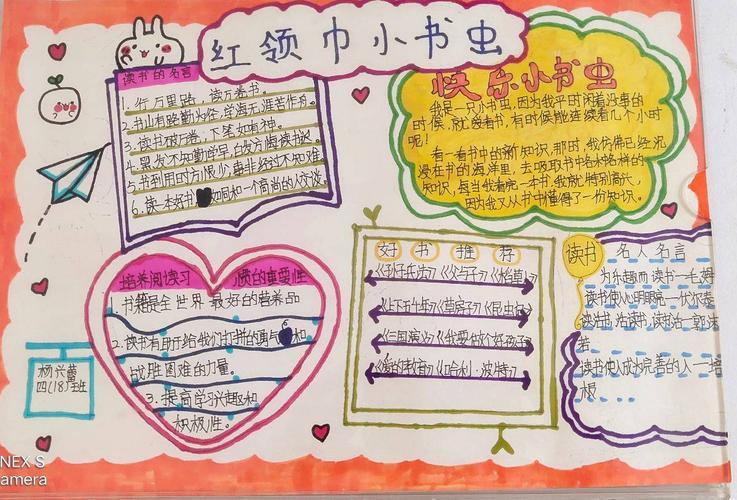 红领巾小书虫
读书的名言
1. 行万里路，读万卷书。
2. 书山有路勤为径，学海无涯苦作舟。
3. 读书破万卷，下笔如有神。
4. 黑发不知勤学早，白首方悔读书迟。
5. 书到用时方恨少，事非经过不知难
6. 读一本好书 如同和一个高尚的人交谈。
快乐小书虫
我是一只小书虫，因为我平时闲着没事的
时候，就爱看书，有时候能连续看几个小时
呢！
看一看书中的新知识，那时，我仿佛已经沉
浸在书的海洋里，去吸取书中各种各样的
知识，每当我看完一本书，我就特别高兴，
因为我又从书中懂得了一份知识。
培养阅读习惯的重要性
1. 书籍是全世界最好的营养品
2. 读书有助于给我们打拼的勇气 和
战胜困难的力量。
3. 提高学习兴趣和
积极性。
好书推荐
《孙子兵法》《父与子》《水浒
《上下五千年》《草房子》《昆虫
《三国演义》《我要做个好孩子
《爱的教育》《哈利·波特》
读书名人名言
为乐趣而读书一毛姆
读书使心明眼亮一伏尔泰
读书使人成为完善的人一培
根
杨兴
四(18)班
NEX S
amera